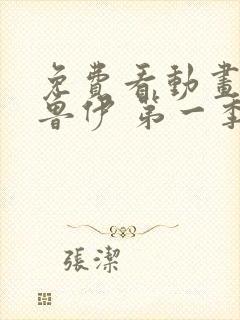 免費看動畫
魯伊 第一季
張潔